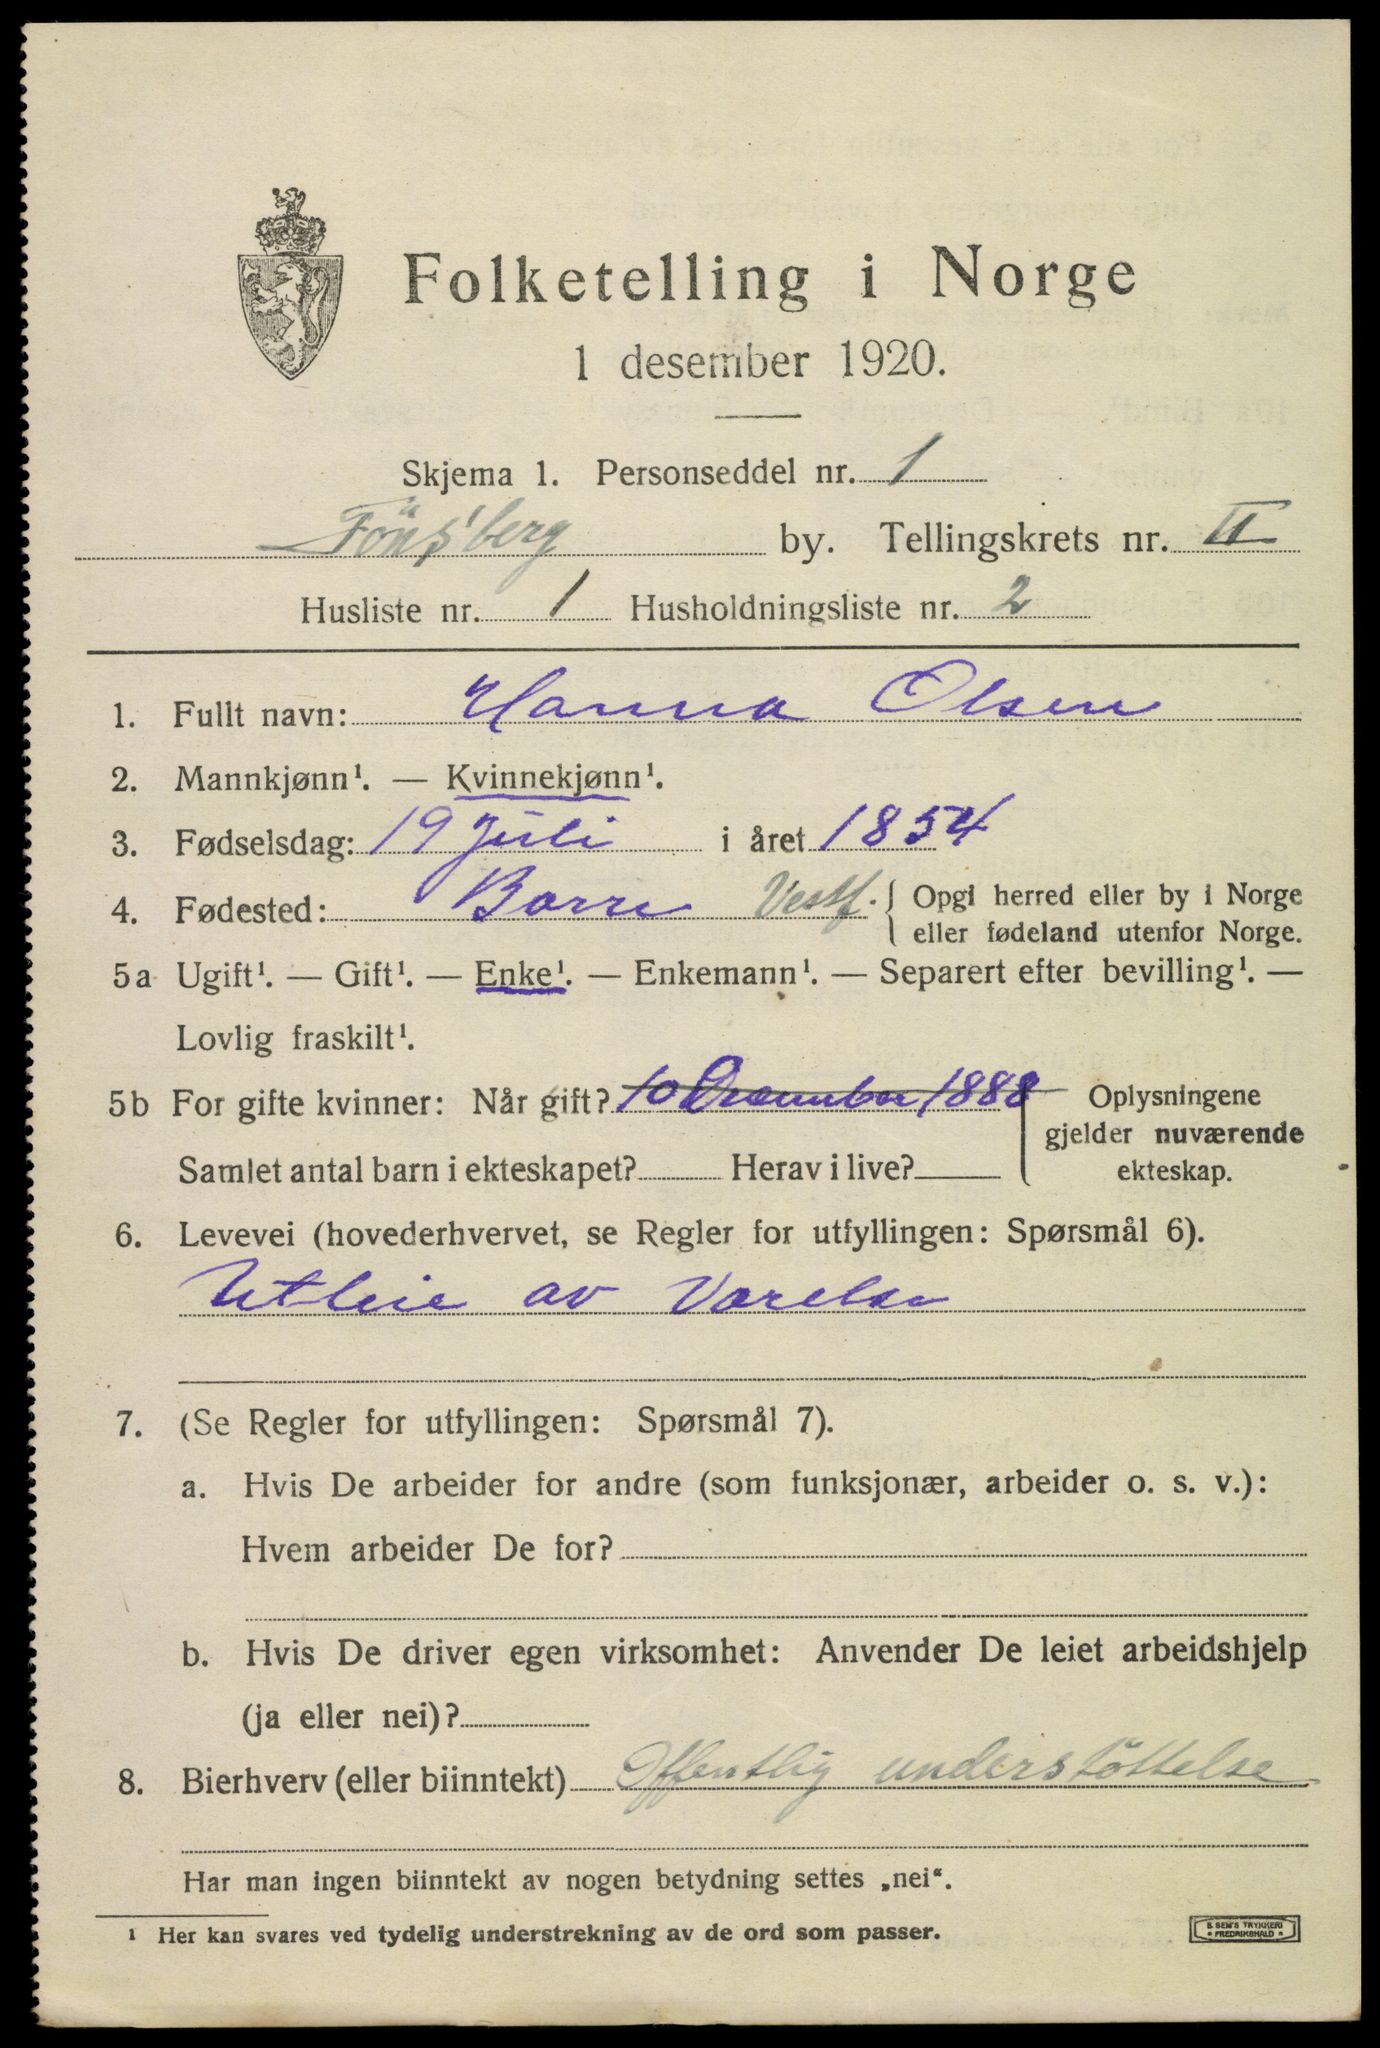 Folketelling i Norge
1 desember 1920.
Skjema 1. Personseddel nr. 1
Tönsberg by. Tellingskrets nr. II
Husliste nr. 1 Husholdningsliste nr. 2
1. Fullt navn: Hanna Olsen
2. Mannkjønn¹. — Kvinnekjønn¹.
3. Fødselsdag: 19 Juli i året 1854
4. Fødested: Borre Vestf. { Opgi herred eller by i Norge
eller fødeland utenfor Norge.
5a Ugift¹. — Gift¹. — Enke¹. — Enkemann¹. — Separert efter bevilling¹. —
Lovlig fraskilt¹.
5b For gifte kvinner: Når gift? 10 December 1888 Oplysningene
gjelder nuværende
Samlet antal barn i ekteskapet? Herav i live? ekteskap.
6. Levevei (hovederhvervet, se Regler for utfyllingen: Spørsmål 6).
Utleie av Værelse
7. (Se Regler for utfyllingen: Spørsmål 7).
a. Hvis De arbeider for andre (som funksjonær, arbeider o. s. v.):
Hvem arbeider De for?
b. Hvis De driver egen virksomhet: Anvender De leiet arbeidshjelp
(ja eller nei)?
8. Bierhverv (eller biinntekt) Offentlig understöttelse
Har man ingen biinntekt av nogen betydning settes „nei“.
¹ Her kan svares ved tydelig understrekning av de ord som passer.
E. SEM'S TRYKKERI
* FREDRIKSHALD *